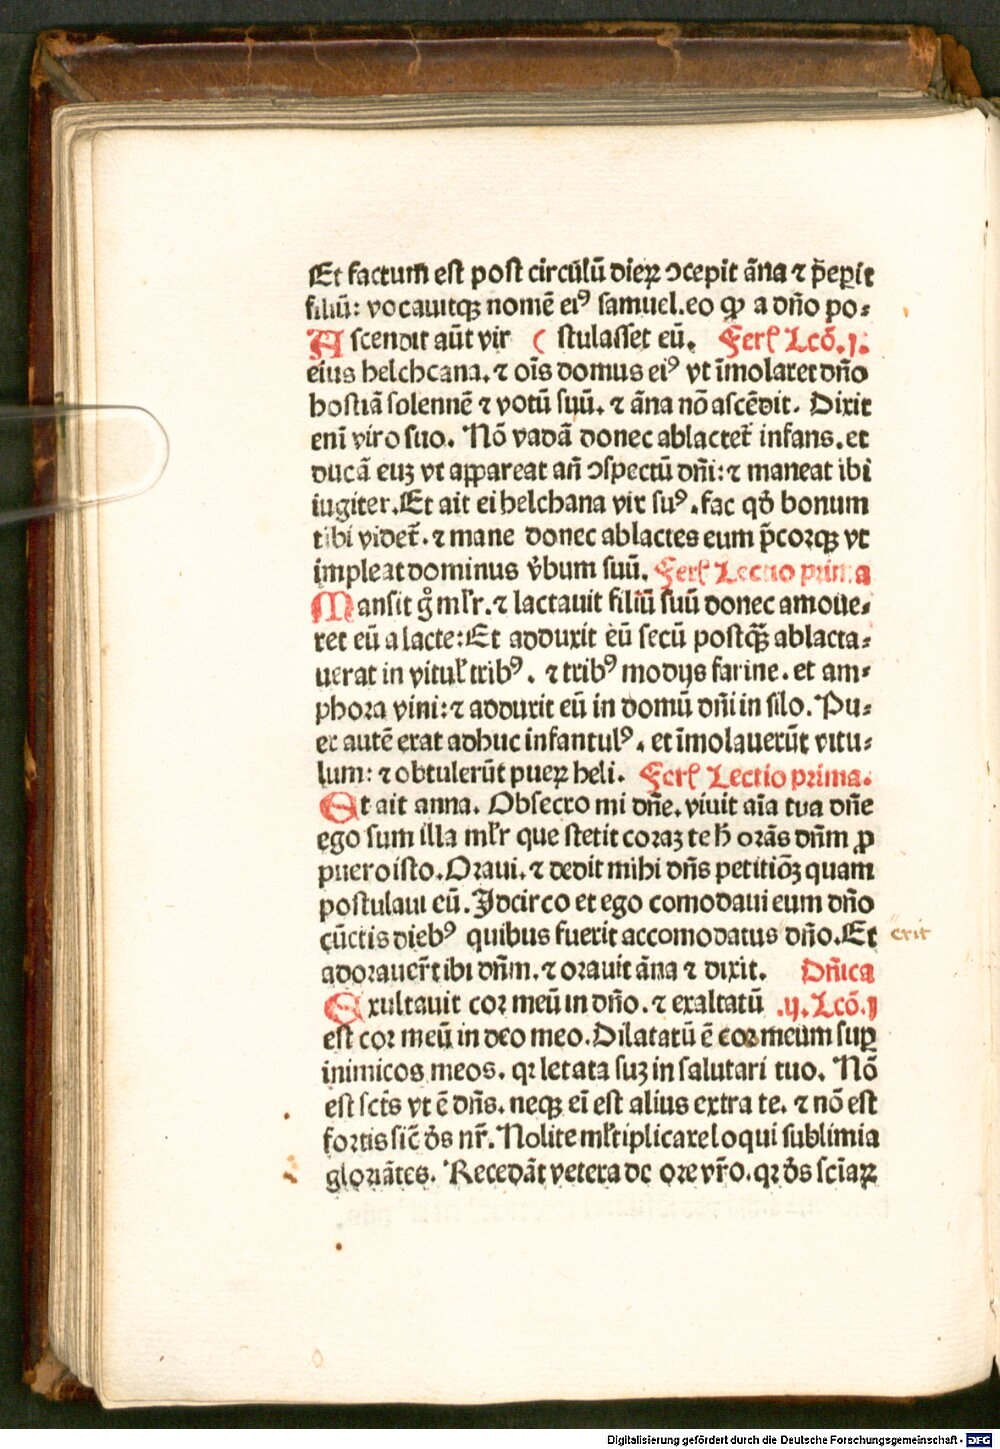 Et factum est post circulū dieꝝ ↄcepit āna ⁊ p̄eperit
filiū: vocauitqꝫ nomē eiꝰ samuel. eo ꝙ a dño po⸗
Ascendit aūt vir ( stulasset eū. Ferꝭ Lcō. j.
eius helchcana. ⁊ oīs domus eiꝰ vt īmolaret dño
hostiā solennē ⁊ votū suū. ⁊ āna nō ascēdit. Dixit
enī viro suo. Nō vadā donec ablactet̄ infans. et
ducā euꝫ vt appareat añ ↄspectū dñi: ⁊ maneat ibi
iugiter. Et ait ei helchana vir suꝰ. fac qđ bonum
tibi videt̄. ⁊ mane donec ablactes eum p̄corqꝫ vt
impleat dominus v̄bum suū. Ferꝭ Lectio prima
Mansit gͦ ml̄r. ⁊ lactauit filiū suū donec amoue⸗
ret eū a lacte: Et adduxit eū secū postqꝫ̄ ablacta⸗
uerat in vitul̄ tribꝰ. ⁊ tribꝰ modijs farine. et am⸗
phora vini: ⁊ adduxit eū in domū dñi in silo. Pu⸗
er autē erat adhuc infantulꝰ. et īmolauerūt vitu⸗
lum: ⁊ obtulerūt pueꝝ heli. Ferꝭ Lectio prima.
Et ait anna. Obsecro mi dñe. viuit aīa tua dñe
ego sum illa ml̄r que stetit coraꝫ te h̄ orās dñm ꝓ
puero isto. Oraui. ⁊ dedit mihi dñs petitiōꝫ quam
postulaui eū. Idcirco et ego comodaui eum dño
cūctis diebꝰ quibus fuerit accomodatus dño. Et exit
adorauer̄t ibi dñm. ⁊ orauit āna ⁊ dixit. Dñica
Exultauit cor meū in dño. ⁊ exaltatū .ij. Lcō. j
est cor meū in deo meo. Dilatatū ē cor meum suꝑ
inimicos meos. qꝛ letata suꝫ in salutari tuo. Nō
est sct̄s vt ē dñs. neqꝫ ei est alius extra te. ⁊ nō est
fortis sic̄ ds̄ nr̄. Nolite ml̄tiplicare loqui sublimia
gloriātes. Recedāt vetera de ore vr̄o. qꝛ ds̄ sciaꝝ
Digitalisierung gefördert durch die Deutsche Forschungsgemeinschaft - DFG